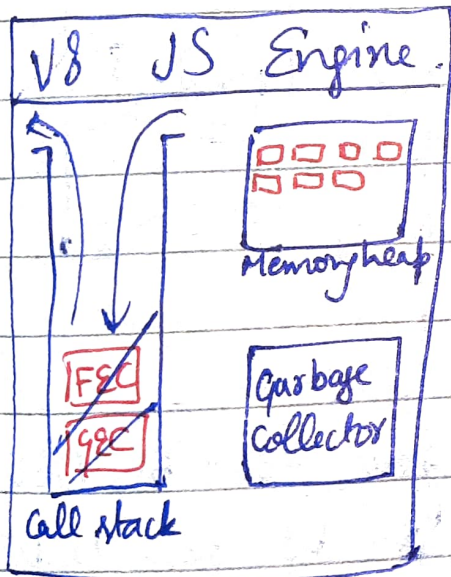 V8 JS Engine.
Memory heap
FEC
GEC
Garbage
Collector
Call stack